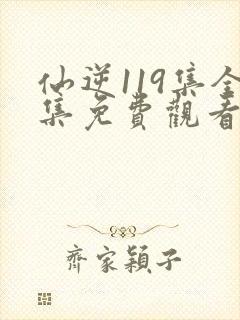 仙逆119集全
集免費觀看
齊家穎子